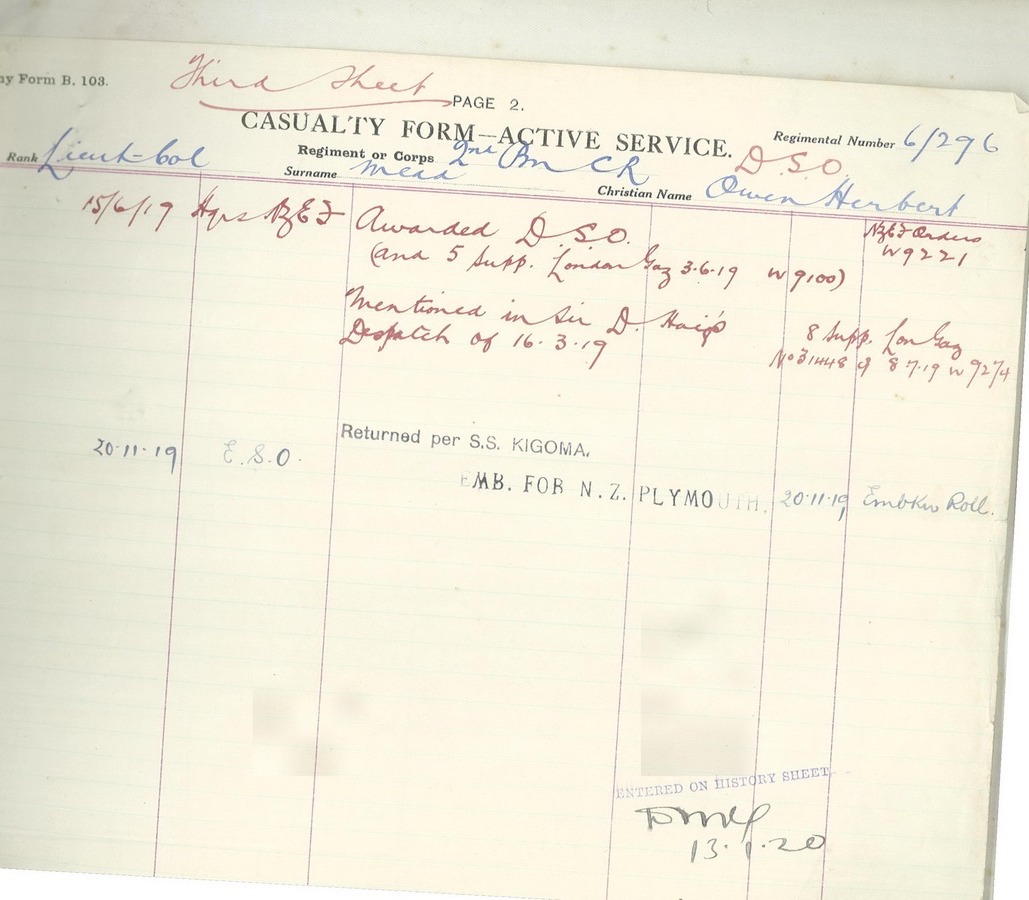 ny Form B. 103.
Third Sheet
PAGE 2.
CASUALTY FORM—ACTIVE SERVICE.
Regimental Number 6/296
Rank Lieut-Col
Regiment or Corps 2nd Bn CR
D.S.O.
Surname Mead
Christian Name Owen Herbert
15/6/19 Hqrs NZEF Awarded D.S.O. NZEF Orders
W9221
(and 5 Supp. London Gaz 3.6.19 W9100)
Mentioned in Sir D. Haig's 8 Supp. Lon Gaz
Despatch of 16.3.19 No 31448 of 8.7.19 W9274
20.11.19 E.S.O. Returned per S.S. KIGOMA.
EMB. FOR N.Z. PLYMOUTH. 20.11.19 Embkn Roll.
ENTERED ON HISTORY SHEET
13.1.20